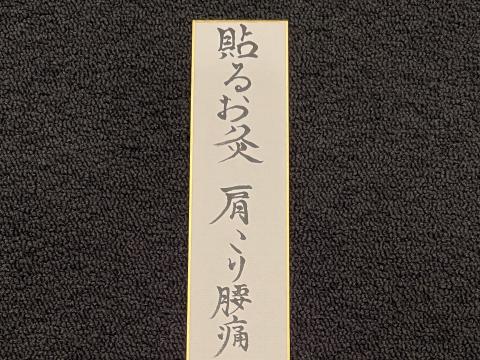 貼るお灸 肩こり腰痛